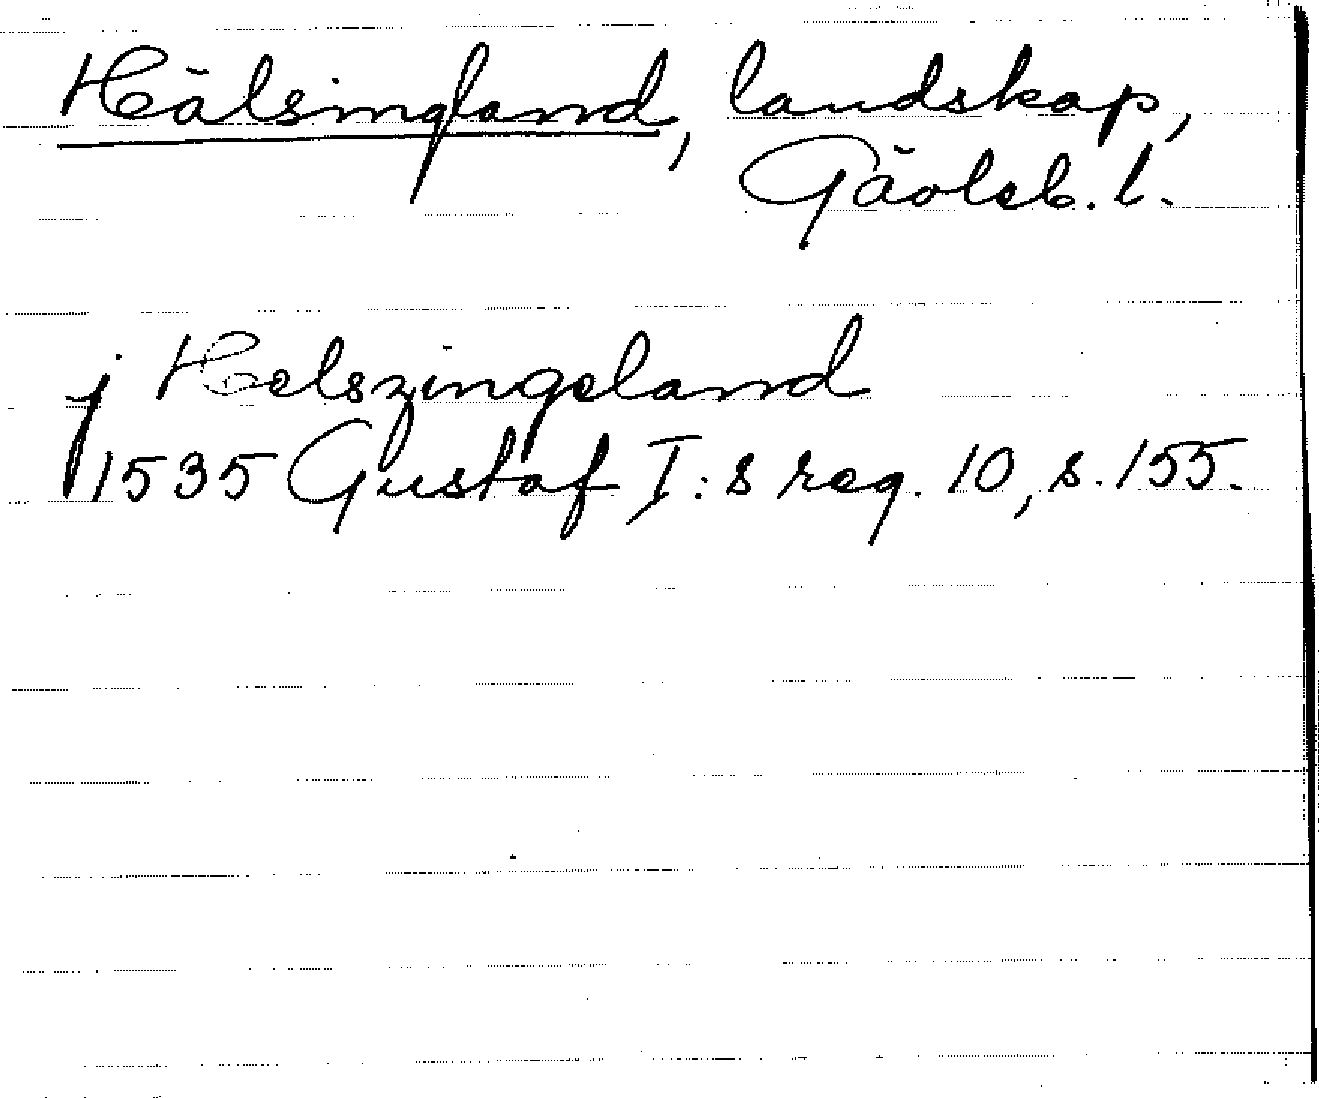 Hälsingland, landskap,
Gävleb. l.
j Helszingeland
1535 Gustaf I:s reg. 10, s. 155.